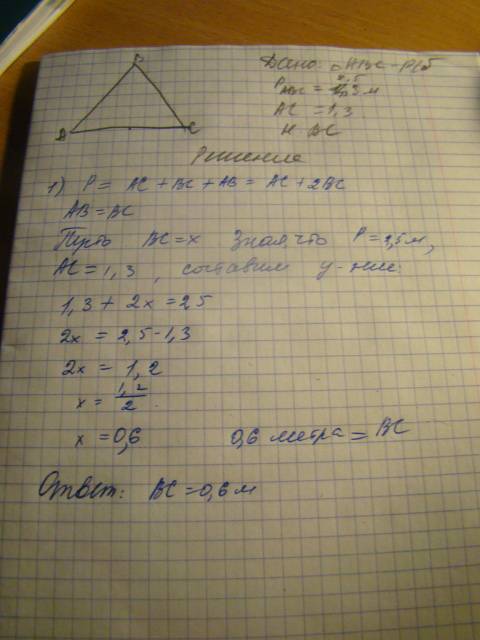 B
A
C
Дано: △ABC - р/б
P ABC = 2,5 м
AC = 1,3
Н BC
Решение
1) P = AC + BC + AB = AC + 2BC
AB = BC
Пусть BC = x Зная, что P = 2,5 м,
AC = 1,3, составим у-ние:
1,3 + 2x = 2,5
2x = 2,5 - 1,3
2x = 1,2
x = 1,2/2
x = 0,6 0,6 метра = BC
Ответ: BC = 0,6 м